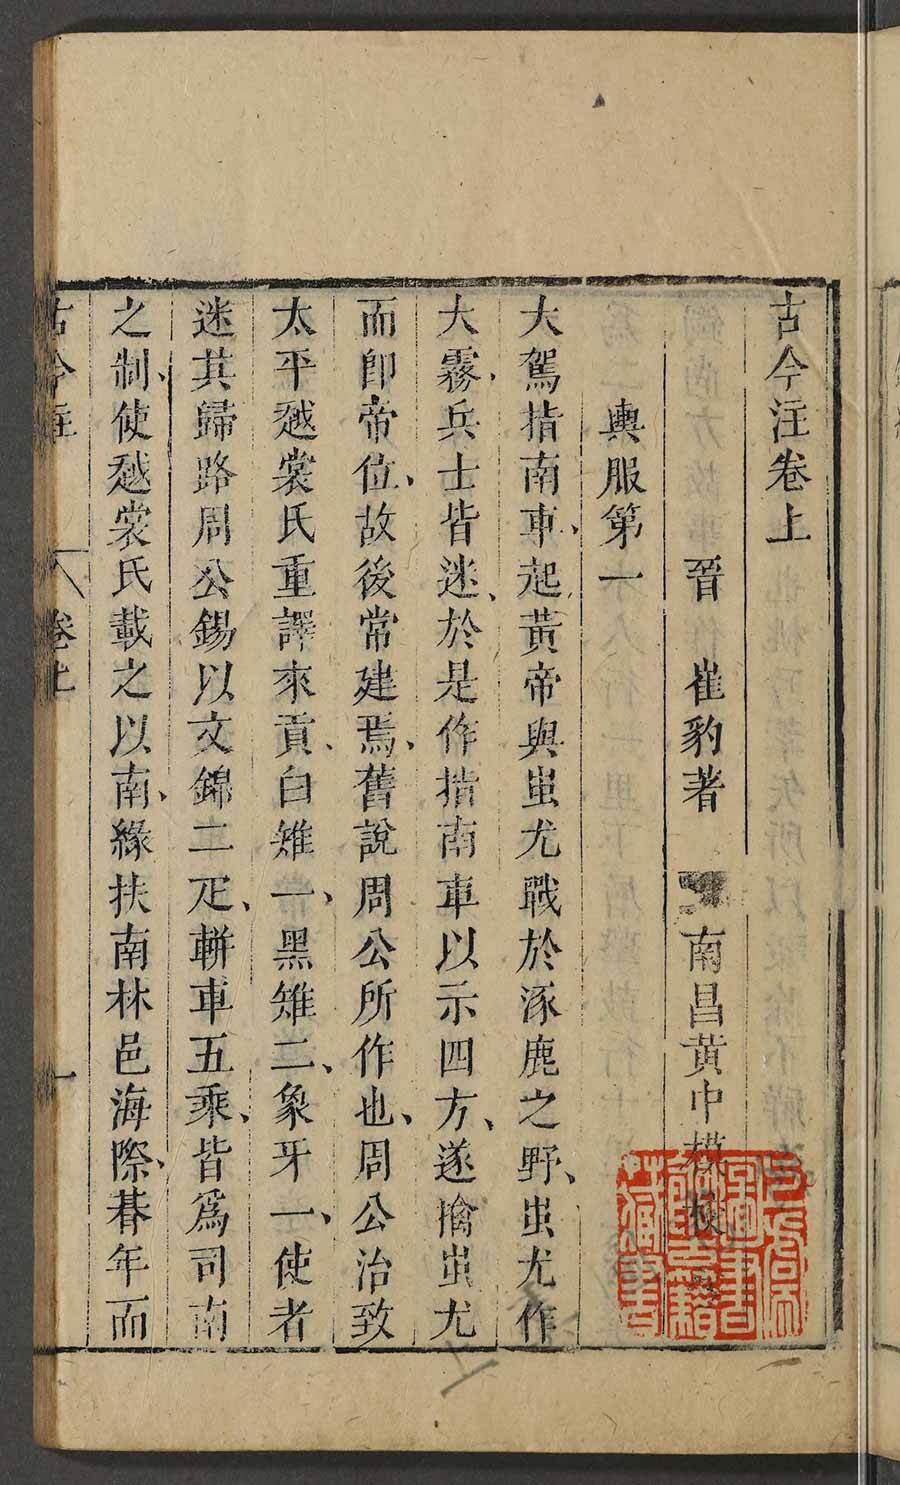 古今注卷上
晉 崔豹著 南昌黃中模校
輿服第一
大駕指南車、起黃帝與蚩尤戰於涿鹿之野、蚩尤作
大霧、兵士皆迷、於是作指南車以示四方、遂擒蚩尤
而卽帝位、故後常建焉、舊說周公所作也、周公治致
太平越裳氏重譯來貢、白雉一、黑雉二、象牙一、使者
迷其歸路周公錫以文錦二疋、軿車五乘、皆爲司南
之制、使越裳氏載之以南、緣扶南林邑海際、朞年而
古今注 卷上 一